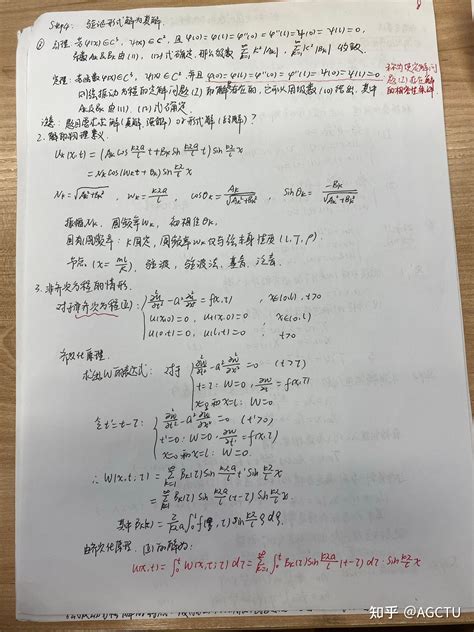 Step4: 验证形式解为真解.
① 引理: 若φ(x)∈C³, ψ(x)∈C², 且φ(0)=φ(l)=φ''(0)=φ''(l)=ψ(0)=ψ(l)=0,
系数Ak及Bk由(11), (12)式确定, 那么级数 收敛.
定理: 若函数φ(x)∈C³, ψ(x)∈C², 并且φ(0)=φ(l)=φ''(0)=φ''(l)=ψ(0)=ψ(l)=0
则弦振动方程的定解问题(2)的解存在的, 它可以用级数(10)给出, 其中
Ak及Bk由(11), (12)式确定.
注意: 题目要求求解 (真解, 强解) or 形式解 (弱解)?
2. 解的物理意义.
Uk(x,t) = (Ak cos kπa/l t + Bk sin kπa/l t) sin kπ/l x
= Nk cos(ωk t + θk) sin kπ/l x
Nk = √(Ak²+Bk²) , ωk = kπa/l , cosθk = Ak/√(Ak²+Bk²) , sinθk = -Bk/√(Ak²+Bk²)
振幅Nk, 圆频率ωk, 初相位θk.
固有圆频率: k固定, 圆频率ωk仅与弦本身性质(l, T, ρ).
节点 (x = ml/k), 驻波, 驻波法, 基音, 泛音.
3. 非齐次方程的情形.
对于非齐次方程(Ⅱ): { ∂²u/∂t² - a² ∂²u/∂x² = f(x,t), x∈(0,l), t>0
u(x,0)=0, ut(x,0)=0, x∈(0,l)
u(0,t)=0, u(l,t)=0, t>0
齐次化原理.
求出W的表达式: 对于 { ∂²W/∂t² - a² ∂²W/∂x² = 0 (t>τ)
t=τ: W=0, ∂W/∂t = f(x,τ)
x=0和x=l: W=0
令t'=t-τ: { ∂²W/∂t'² - a² ∂²W/∂x² = 0 (t'>0)
t'=0: W=0, ∂W/∂t' = f(x,τ)
x=0和x=l: W=0
∴ W(x,t;τ) = ∑ Bk(τ) sin kπa/l t' sin kπ/l x
= ∑ Bk(τ) sin kπa/l (t-τ) sin kπ/l x
其中Bk(τ) = 2/kπa ∫₀ˡ f(ξ,τ) sin kπ/l ξ dξ
由齐次化原理, 的解为:
u(x,t) = ∫₀ᵗ W(x,t;τ) dτ = ∑ ∫₀ᵗ Bk(τ) sin kπa/l (t-τ) dτ · sin kπ/l x
知乎 @AGCTU